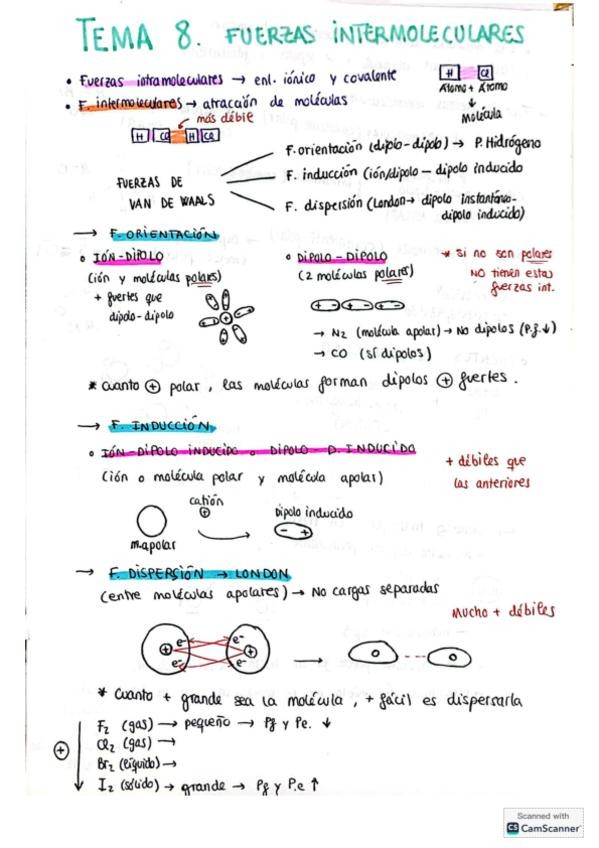 TEMA 8. FUERZAS INTERMOLECULARES
• Fuerzas intramoleculares → enl. iónico y covalente
H Cl
Átomo + Átomo
↓
Molécula
• F. intermoleculares → atracción de moléculas
más débil
H Cl H Cl
FUERZAS DE
VAN DE WAALS
F. orientación (diplo-dipolo) → P. Hidrógeno
F. inducción (ión/dipolo – dipolo inducido
F. dispersión (London → dipolo instantáneo-
dipolo inducido)
→ F. ORIENTACIÓN
• IÓN-DIPOLO
(ión y moléculas polares)
+ fuertes que
dipolo-dipolo
• DIPOLO-DIPOLO
(2 moléculas polares)
* Si no son polares
NO tienen estas
fuerzas int.
→ N2 (molécula apolar) → No dipolos (P.f. ↓)
→ CO (SÍ dipolos)
* cuanto + polar, las moléculas forman dipolos + fuertes.
→ F. INDUCCIÓN
• IÓN-DIPOLO INDUCIDO o DIPOLO-D. INDUCIDO
(ión o molécula polar y molécula apolar)
+ débiles que
las anteriores
catión
+
m.apolar
Dipolo inducido
- +
→ F. DISPERSIÓN → LONDON
(entre moléculas apolares) → No cargas separadas
Mucho + débiles
e- e-
+ +
e- e-
* Cuanto + grande sea la molécula, + fácil es dispersarla
F2 (gas) → pequeño → Pf y Pe. ↓
Cl2 (gas) →
Br2 (líquido) →
I2 (sólido) → grande → Pf y P.e ↑
+
Scanned with
CS CamScanner